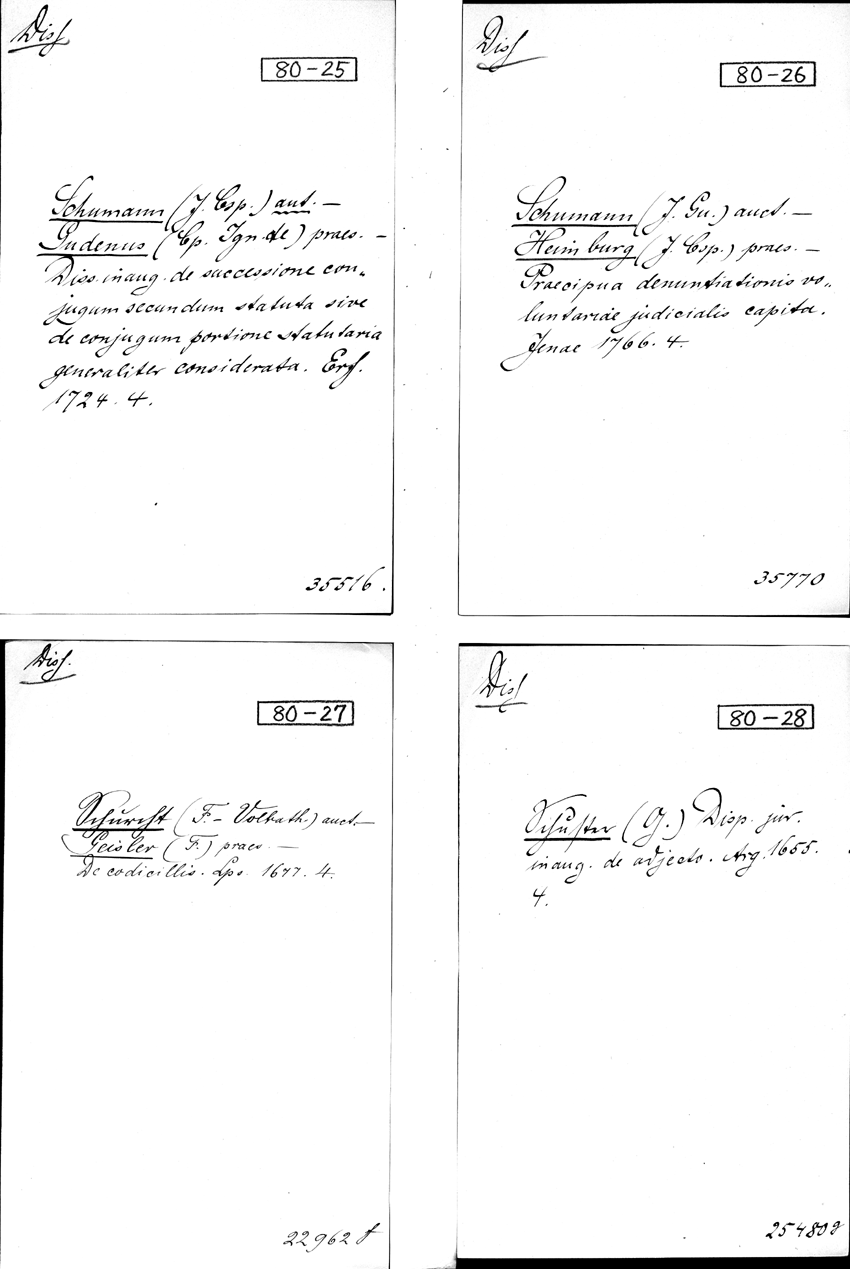 Diss
80-25
Schumann (J. Csp.) aut. —
Gudenus (Cp. Ign. de) praes. —
Diss. inaug. de successione con„
jugum secundum statuta sive
de conjugum portione statutaria
generaliter considerata. Erf.
1724. 4.
35516.
Diss
80-26
Schumann (J. Gu.) auct. —
Heimburg (J. Csp.) praes. —
Praecipua denuntiationis vo„
luntariae judicialis capita.
Jenae 1766. 4.
35770
Diss.
80-27
Schurcht (F. - Volrath.) auct. —
Geisler (F.) praes. —
De codicillis. Lps. 1677. 4.
22962 f
Diss
80-28
Schuster (G.) Disp. jur.
inaug. de adjecto. Arg. 1655.
4.
25480g